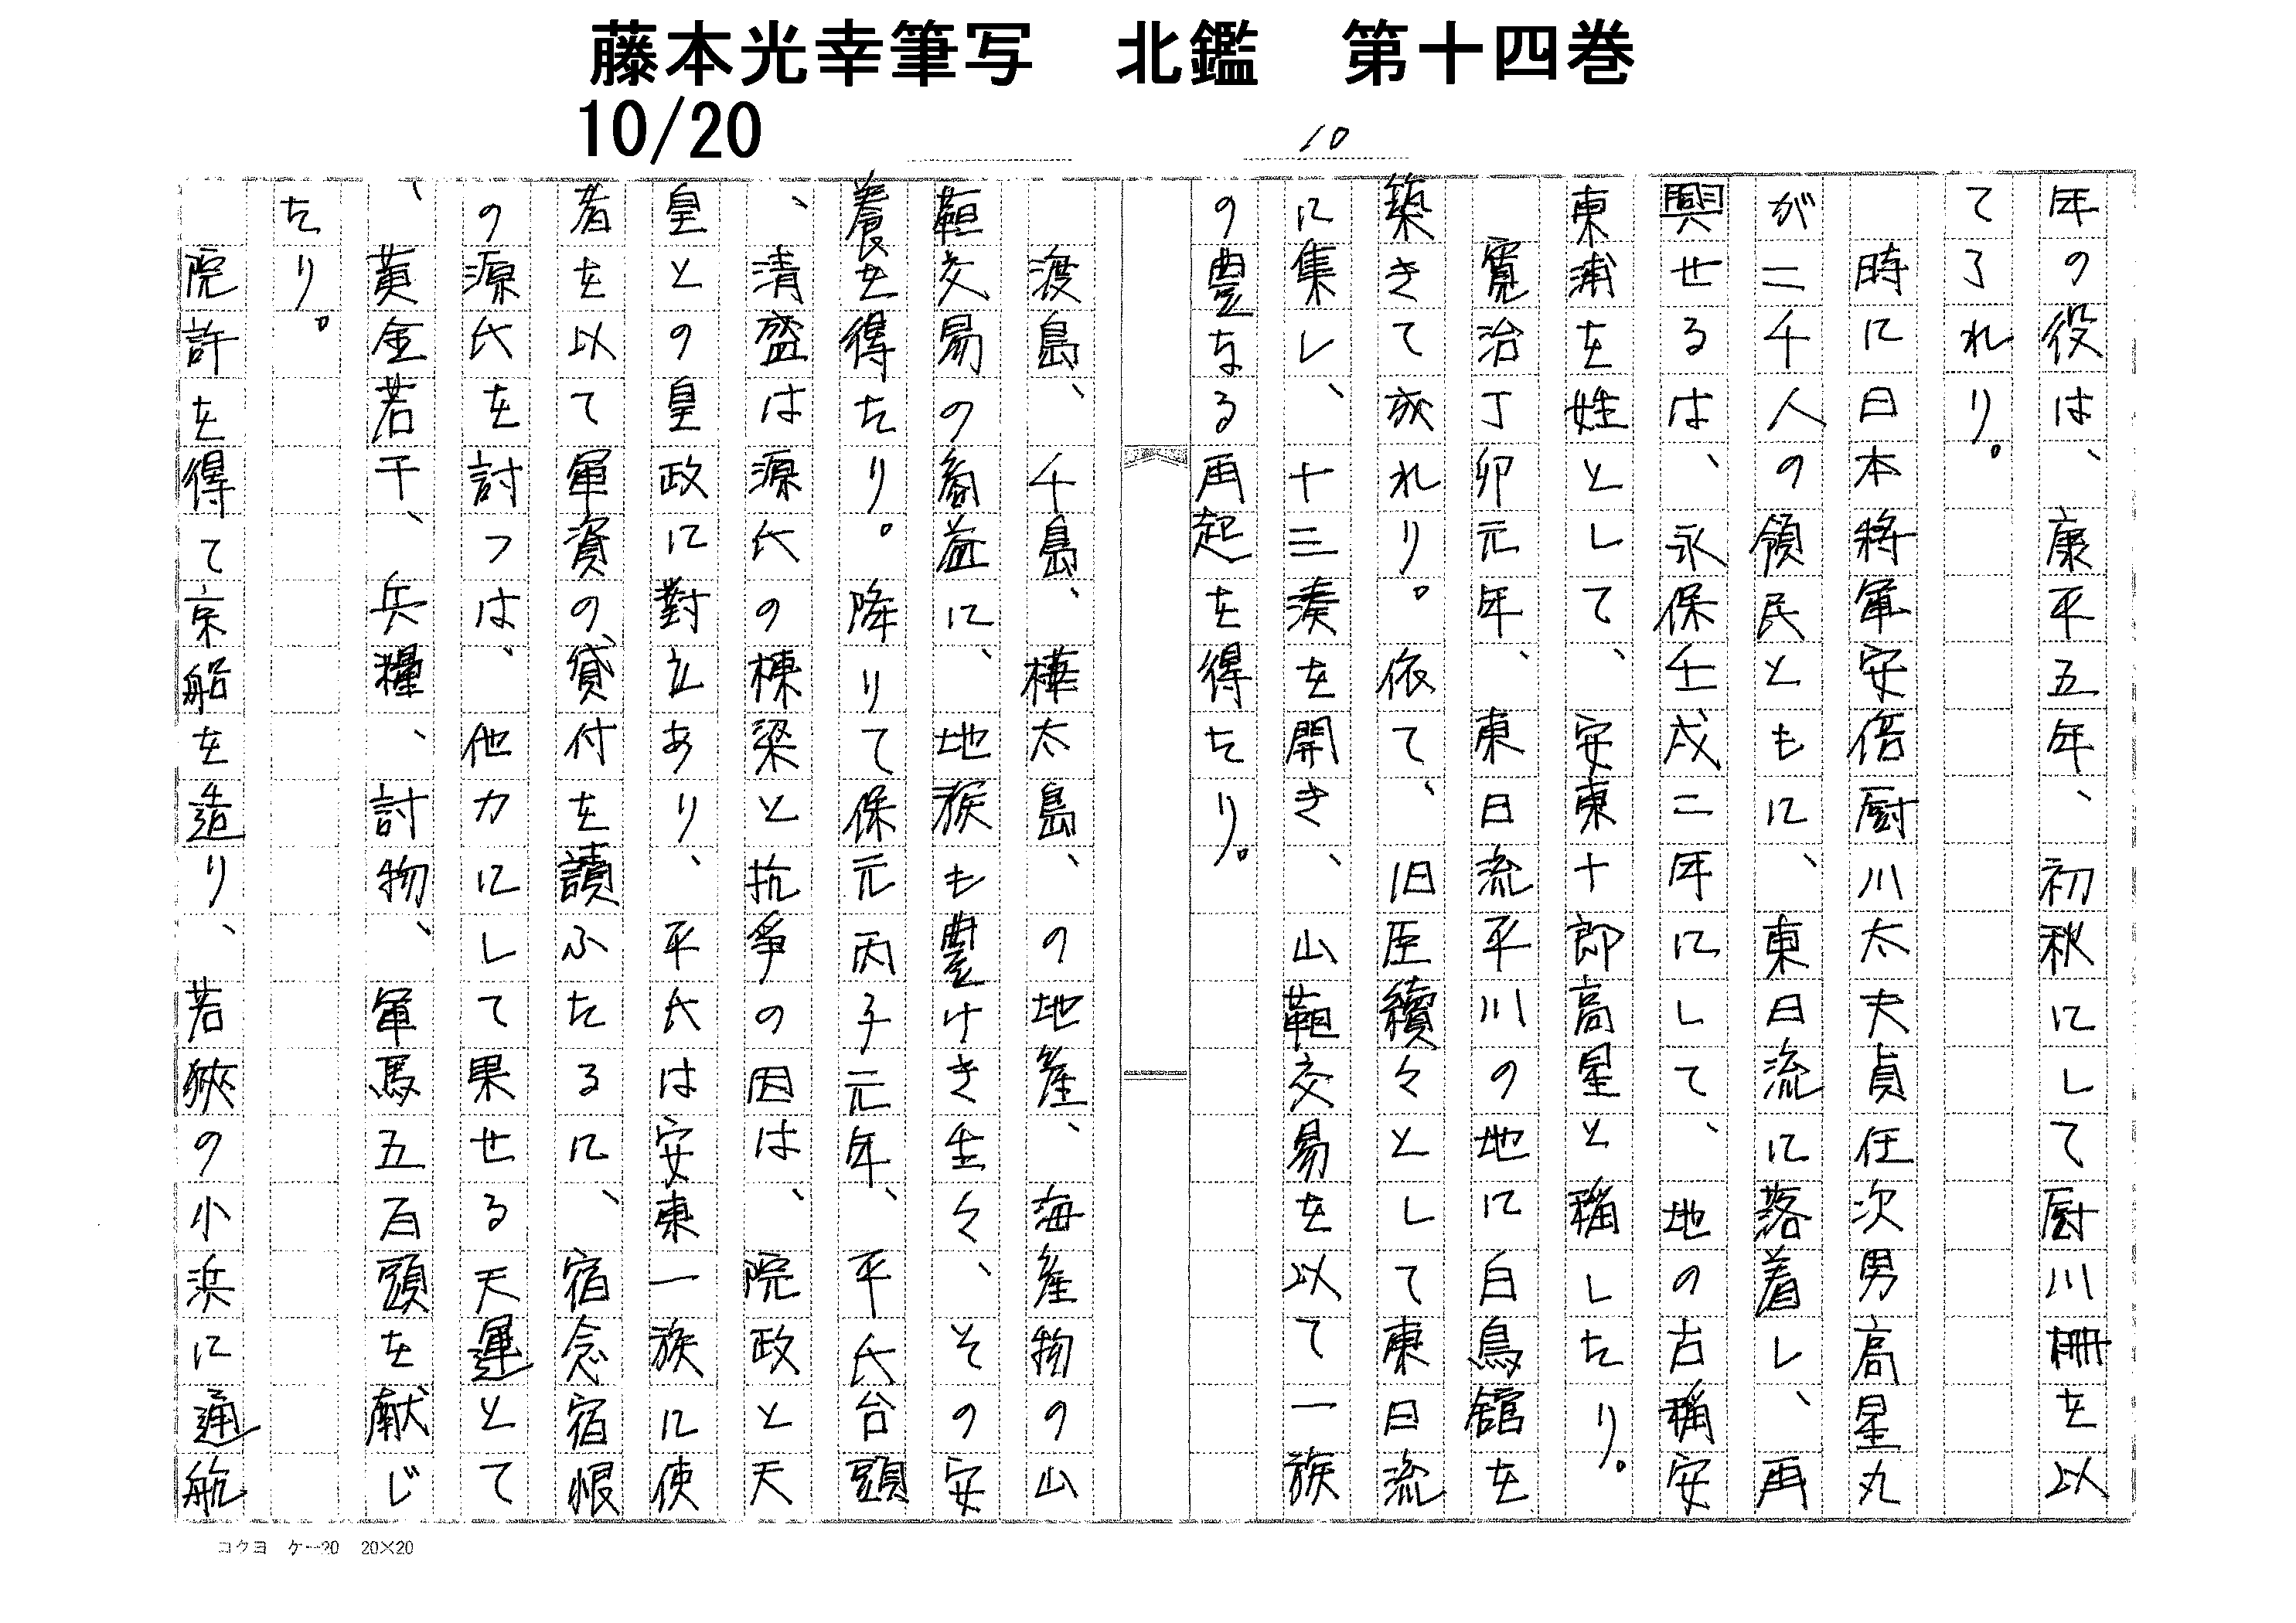 藤本光幸筆写　北鑑　第十四巻
10/20
10
年の役は、康平五年、初秋にして厨川柵を以
て了れり。
時に日本将軍安倍厨川太夫貞任次男高星丸
が二千人の領民ともに、東日流に落着し、再
興せるは、永保壬戌二年にして、地の古稱安
東浦を姓として、安東十郎高星と稱したり。
寛治丁卯元年、東日流平川の地に白鳥舘を
築きて挙れり。依て、旧臣續々として東日流
に集し、十三湊を開き、山靼交易を以て一族
の豊なる再起を得たり。
渡島、千島、樺太島、の地産、海産物の山
靼交易の商益に、地族も豊けき生々、その安
養を得たり。降りて保元丙子元年、平氏台頭
、清盛は源氏の棟梁と抗争の因は、院政と天
皇との皇政に對立あり、平氏は安東一族に使
者を以て軍資の貸付を請ふたるに、宿念宿恨
の源氏を討つは、他力にして果せる天運とて
、黄金若干、兵糧、討物、軍馬五百頭を献じ
たり。
院許を得て京船を造り、若狹の小浜に通航
コクヨ　ケー20　20×20